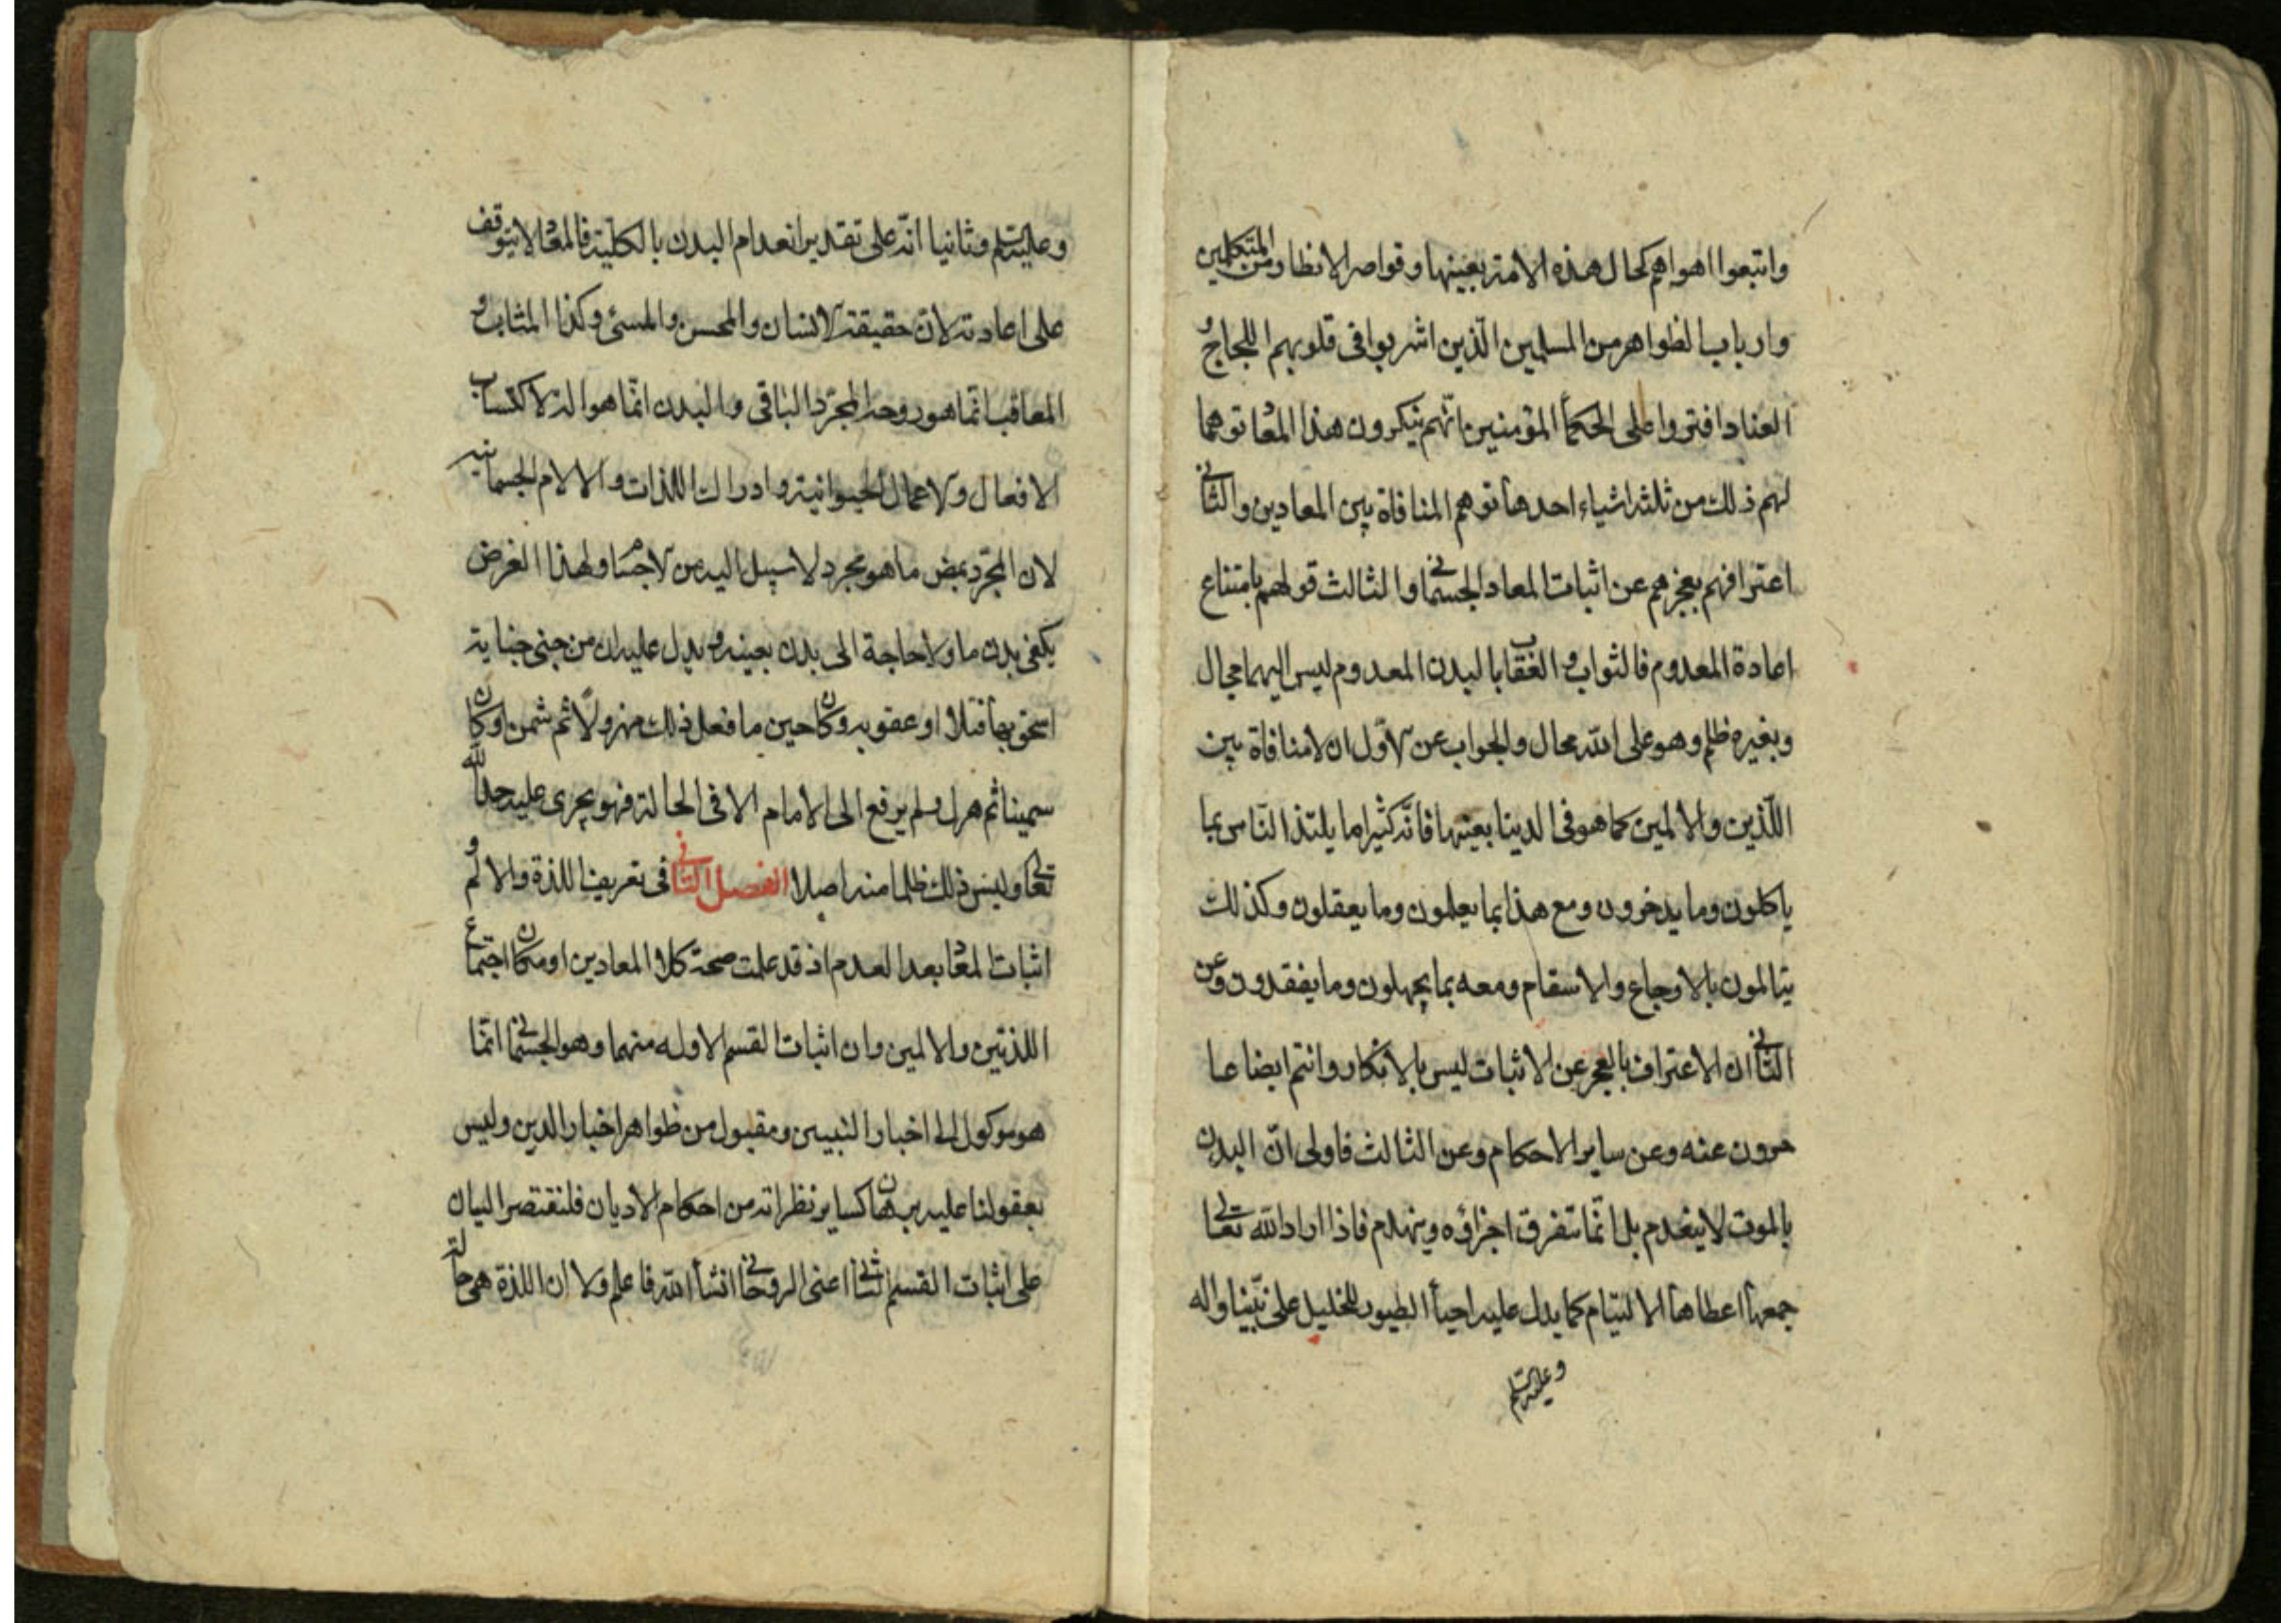 واتبعوا اهواهم كحال هذه الامة بعينها وقواصر الانظار ومن المتكلمين
وارباب الظواهر من المسلمين الذين اشربوا فى قلوبهم اللجاج و
العناد افتروا على الحكمأ المؤمنين بانهم ينكرون هذا المعاد توهما
لهم ذلك من ثلثه اشياء احدها توهم المنافاة بين المعادين والثانى
اعترافهم بعجزهم عن اثبات المعاد الجسمانى والثالث قولهم بامتناع
اعادة المعدوم فالثواب و العقاب بالبدن المعدوم ليس اليهما مجال
وبغيره ظلم وهو على الله محال والجواب عن الاول ان لا منافاة بين
اللذين والالمين كما هو فى الدينا بعينها فانه كثيرا ما يلتذ الناس بما
ياكلون وما يدخرون ومع هذا بما يعلمون وما يعقلون وكذلك
يتالمون بالاوجاع والاسقام ومعه بما يجهلون وما يفقدون وعن
الثانى ان الاعتراف بالعجز عن الاثبات ليس بالانكار وانتم ايضا عا
جزون عنه وعن ساير الاحكام وعن الثالث فاولى ان البدن
بالموت لا ينعدم بل انما تتفرق اجزاؤه وينهدم فاذا اراد الله تعالى
جمعها اعطاها الالتيام كما يدل عليه احيأ الطيور للخليل على نبينا واله
وعليه السلم
وعليه السلم وثانيا انه على تقدير انعدام البدن بالكلية فالمعاد لا يتوقف
على اعادته لان حقيقة الانسان والمحسن والمسئ وكذا المثاب و
المعاقب انما هو روحه المجرد الباقى والبدن انما هو الة لاكتساب
الافعال والاعمال الحيوانية وادراك اللذات والالام الجسمانيه
لان المجرد بمض ما هو مجرد لا سبيل اليه من الاجسام ولهذا الغرض
يكفى بدن ما ولا حاجة الى بدن بعينه و يدل عليه ان من جنى جناية
استحق بها قتلا او عقوبه وكان حين ما فعل ذلك مهزولا ثم سمن او كان
سمينا ثم هزل ولم يرفع الى الامام الا فى الحالة فهو يجرى عليه حد الله
تعالى وليس ذلك ظلما منه اصلا الفصل الثانى فى تعريف اللذة والالم و
اثبات المعاد بعد العدم اذ قد علمت صحة كلا المعادين او مكان اجتماع
اللذتين والالمين وان اثبات القسم الاوله منهما وهو الجسمانى انما
هو موكول الى اخبار النبيين ومقبول من ظواهر اخبار الدين وليس
بعقولنا عليه برهان كساير نظراته من احكام الاديان فلنقتصر البيان
على اثبات القسم الثانى اعنى الروحانى انشأ الله فاعلم ولا ان اللذة هى حالة